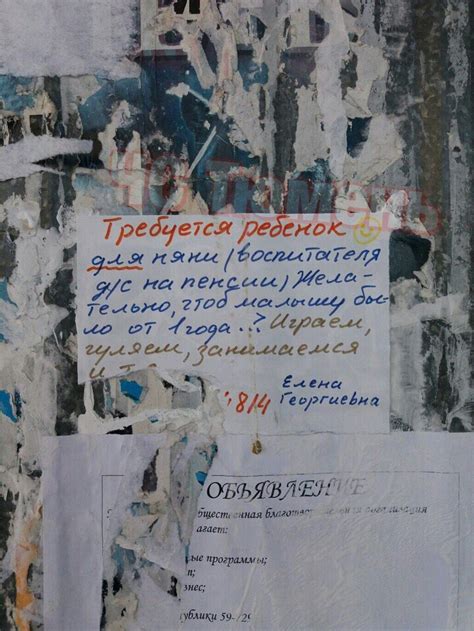 ЧС Тюмень
Требуется ребёнок
для няни (воспитателя
д/с на пенсии) Жела-
тельно, чтоб малышу бы-
ло от 1 года..? Играем,
гуляем, занимаемся
и т.
8/4
Елена
Георгиевна
ОБЪЯВЛЕНИЕ
бщественная благотв организация
агает:
ые программы;
п;
знес;
ублики 59-/29